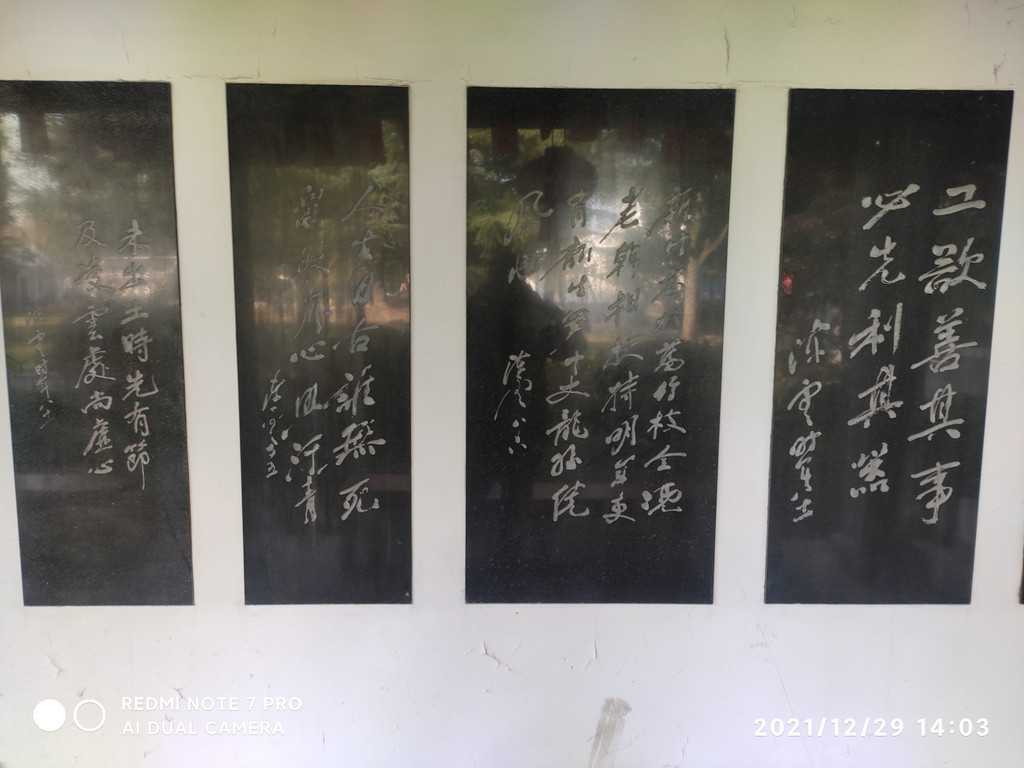 工欲善其事
必先利其器
新竹高於舊竹枝全憑
老幹扶持明年更
有新生者十丈龍孫繞
鳳池
人生自古誰無死
留取丹心照汗青
未出土時先有節
及凌雲處尚虛心
REDMI NOTE 7 PRO
AI DUAL CAMERA
2021/12/29 14:03